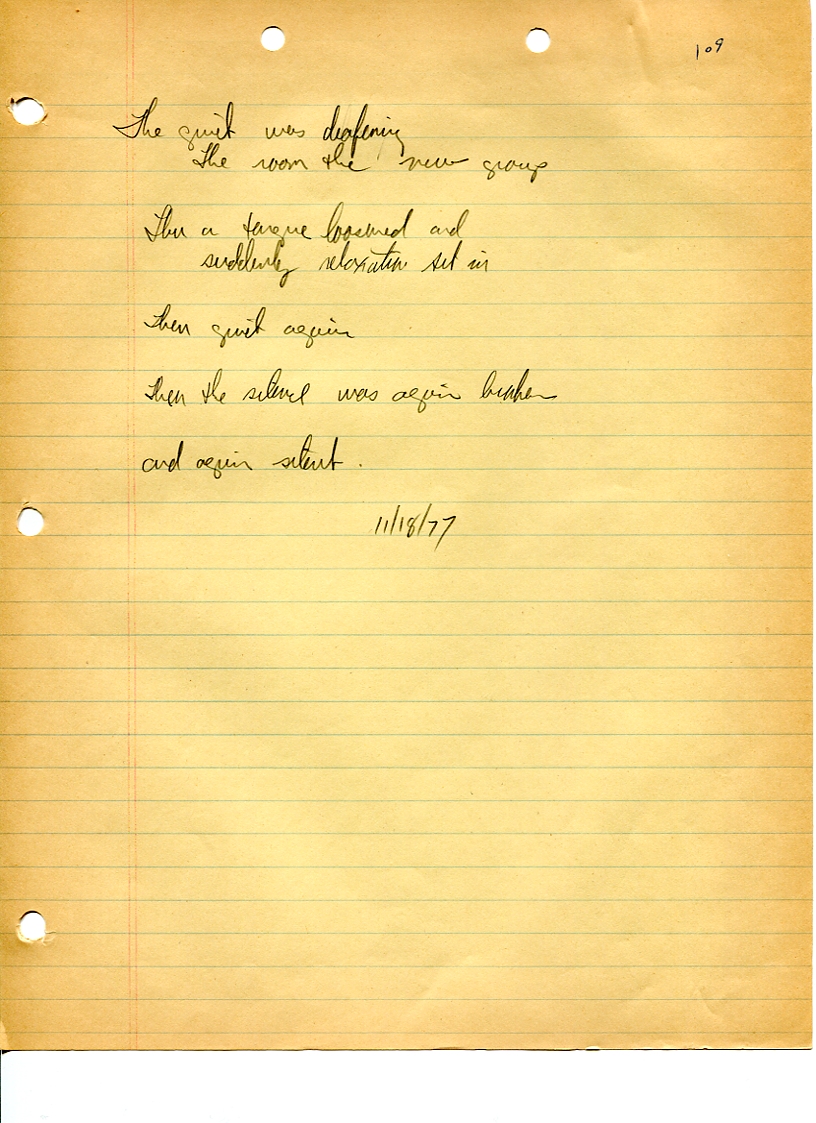 109
The quiet was deafening
The room the new group
Then a tongue loosened and
suddenly relaxation set in
Then quiet again
Then the silence was again broken
and again silent.
11/18/77